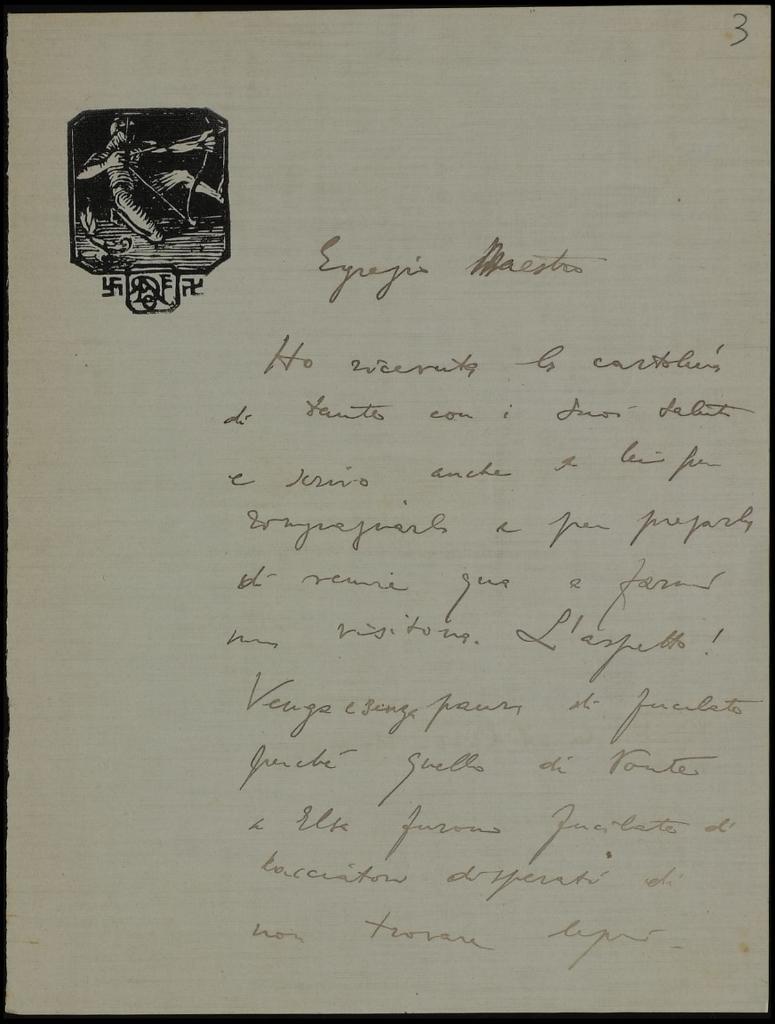 3
Egregio Maestro
Ho ricevuto la cartolina
di Dante con i suoi saluti
e scrivo anche a lei per
ringraziarla e per pregarla
di venire qua a farmi
una visitona. L'aspetto!
Venga e senza paura di fucilate
perché quelle di Dante
a Elsa furono fucilate di
cacciatori disperati di
non trovare lepri.